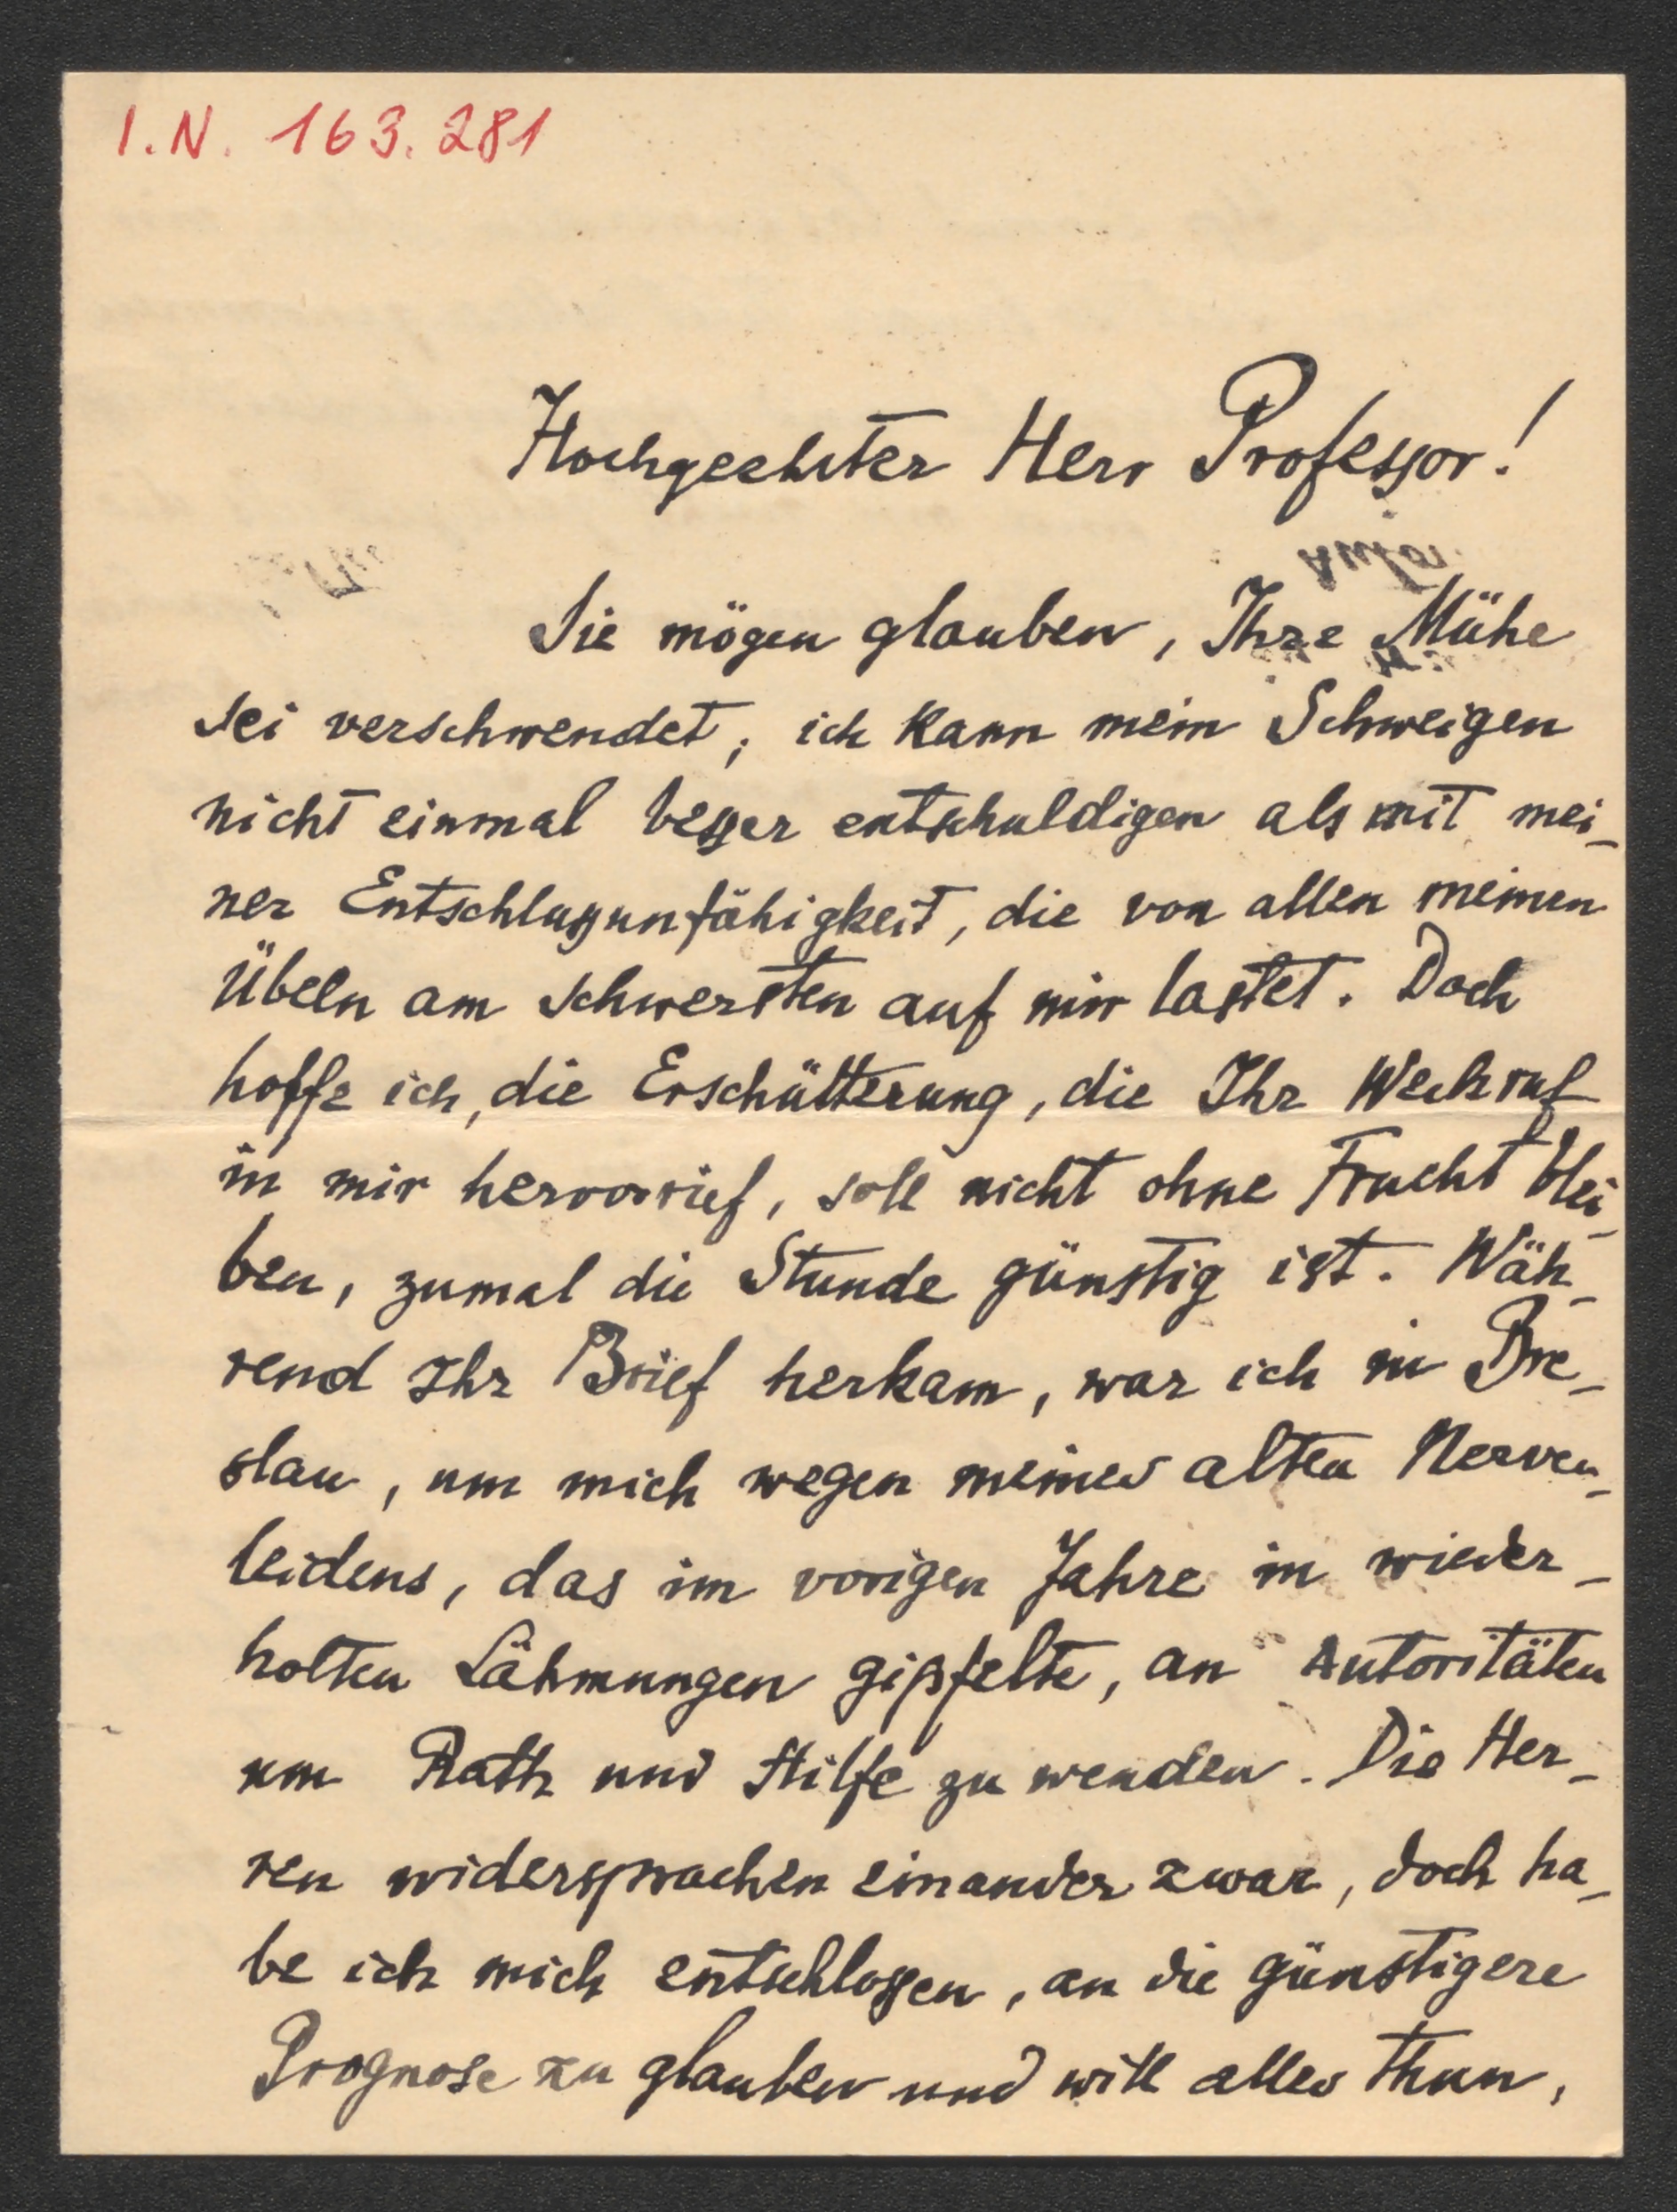 I.N. 163.281
Hochgeehrter Herr Professor!
Sie mögen glauben, Ihre Mühe
sei verschwendet; ich kann mein Schweigen
nicht einmal besser entschuldigen als mit mei-
ner Entschlussunfähigkeit, die von allen meinen
Übeln am schwersten auf mir lastet. Doch
hoffe ich, die Erschütterung, die Ihr Weckruf
in mir hervorrief, soll nicht ohne Frucht blei-
ben, zumal die Stunde günstig ist. Wäh-
rend Ihr Brief herkam, war ich in Bre-
slau, um mich wegen meines alten Nerven-
leidens, das im vorigen Jahre in wieder-
holten Lähmungen gipfelte, an Autoritäten
um Rath und Hilfe zu wenden. Die Her-
ren widersprachen einander zwar, doch ha-
be ich mich entschlossen, an die günstigere
Prognose zu glauben und will alles thun,